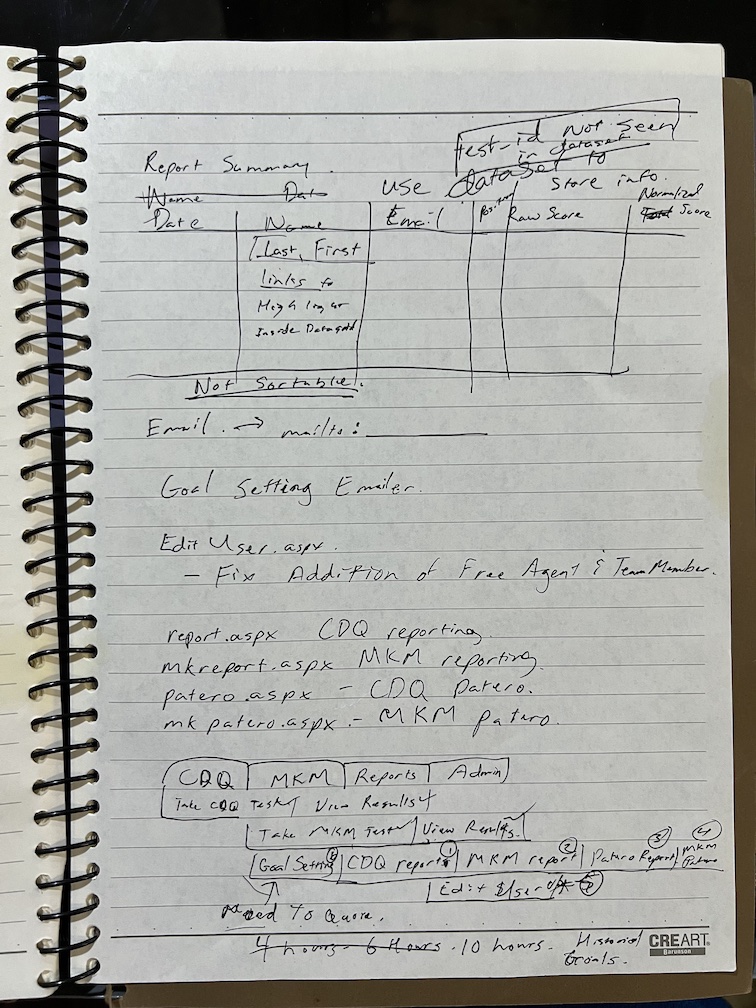 test-id Not seen
in dataset
Report Summary.
use dataset to
store info.
Name Date
Date Name Email Position Raw Score Normalized
Total Score
Last, First
links to
Inside Datagrid
Not Sortable.
Email → mailto:
Goal Setting Emailer.
Edit User.aspx.
- Fix Addition of Free Agent & Team Member.
report.aspx CDQ reporting.
mkreport.aspx MKM reporting.
patero.aspx - CDQ Patero.
mk patero.aspx - MKM patero.
CDQ MKM Reports Admin
Take CDQ Test View Results
Take MKM Test View Results
Goal Setting CDQ report 1 MKM report 2 Patero Report 3 MKM Patero 4
Edit User 5
Need To Quote.
4 hours - 6 Hours - 10 hours. Historical
Goals.
CREART
Barunson